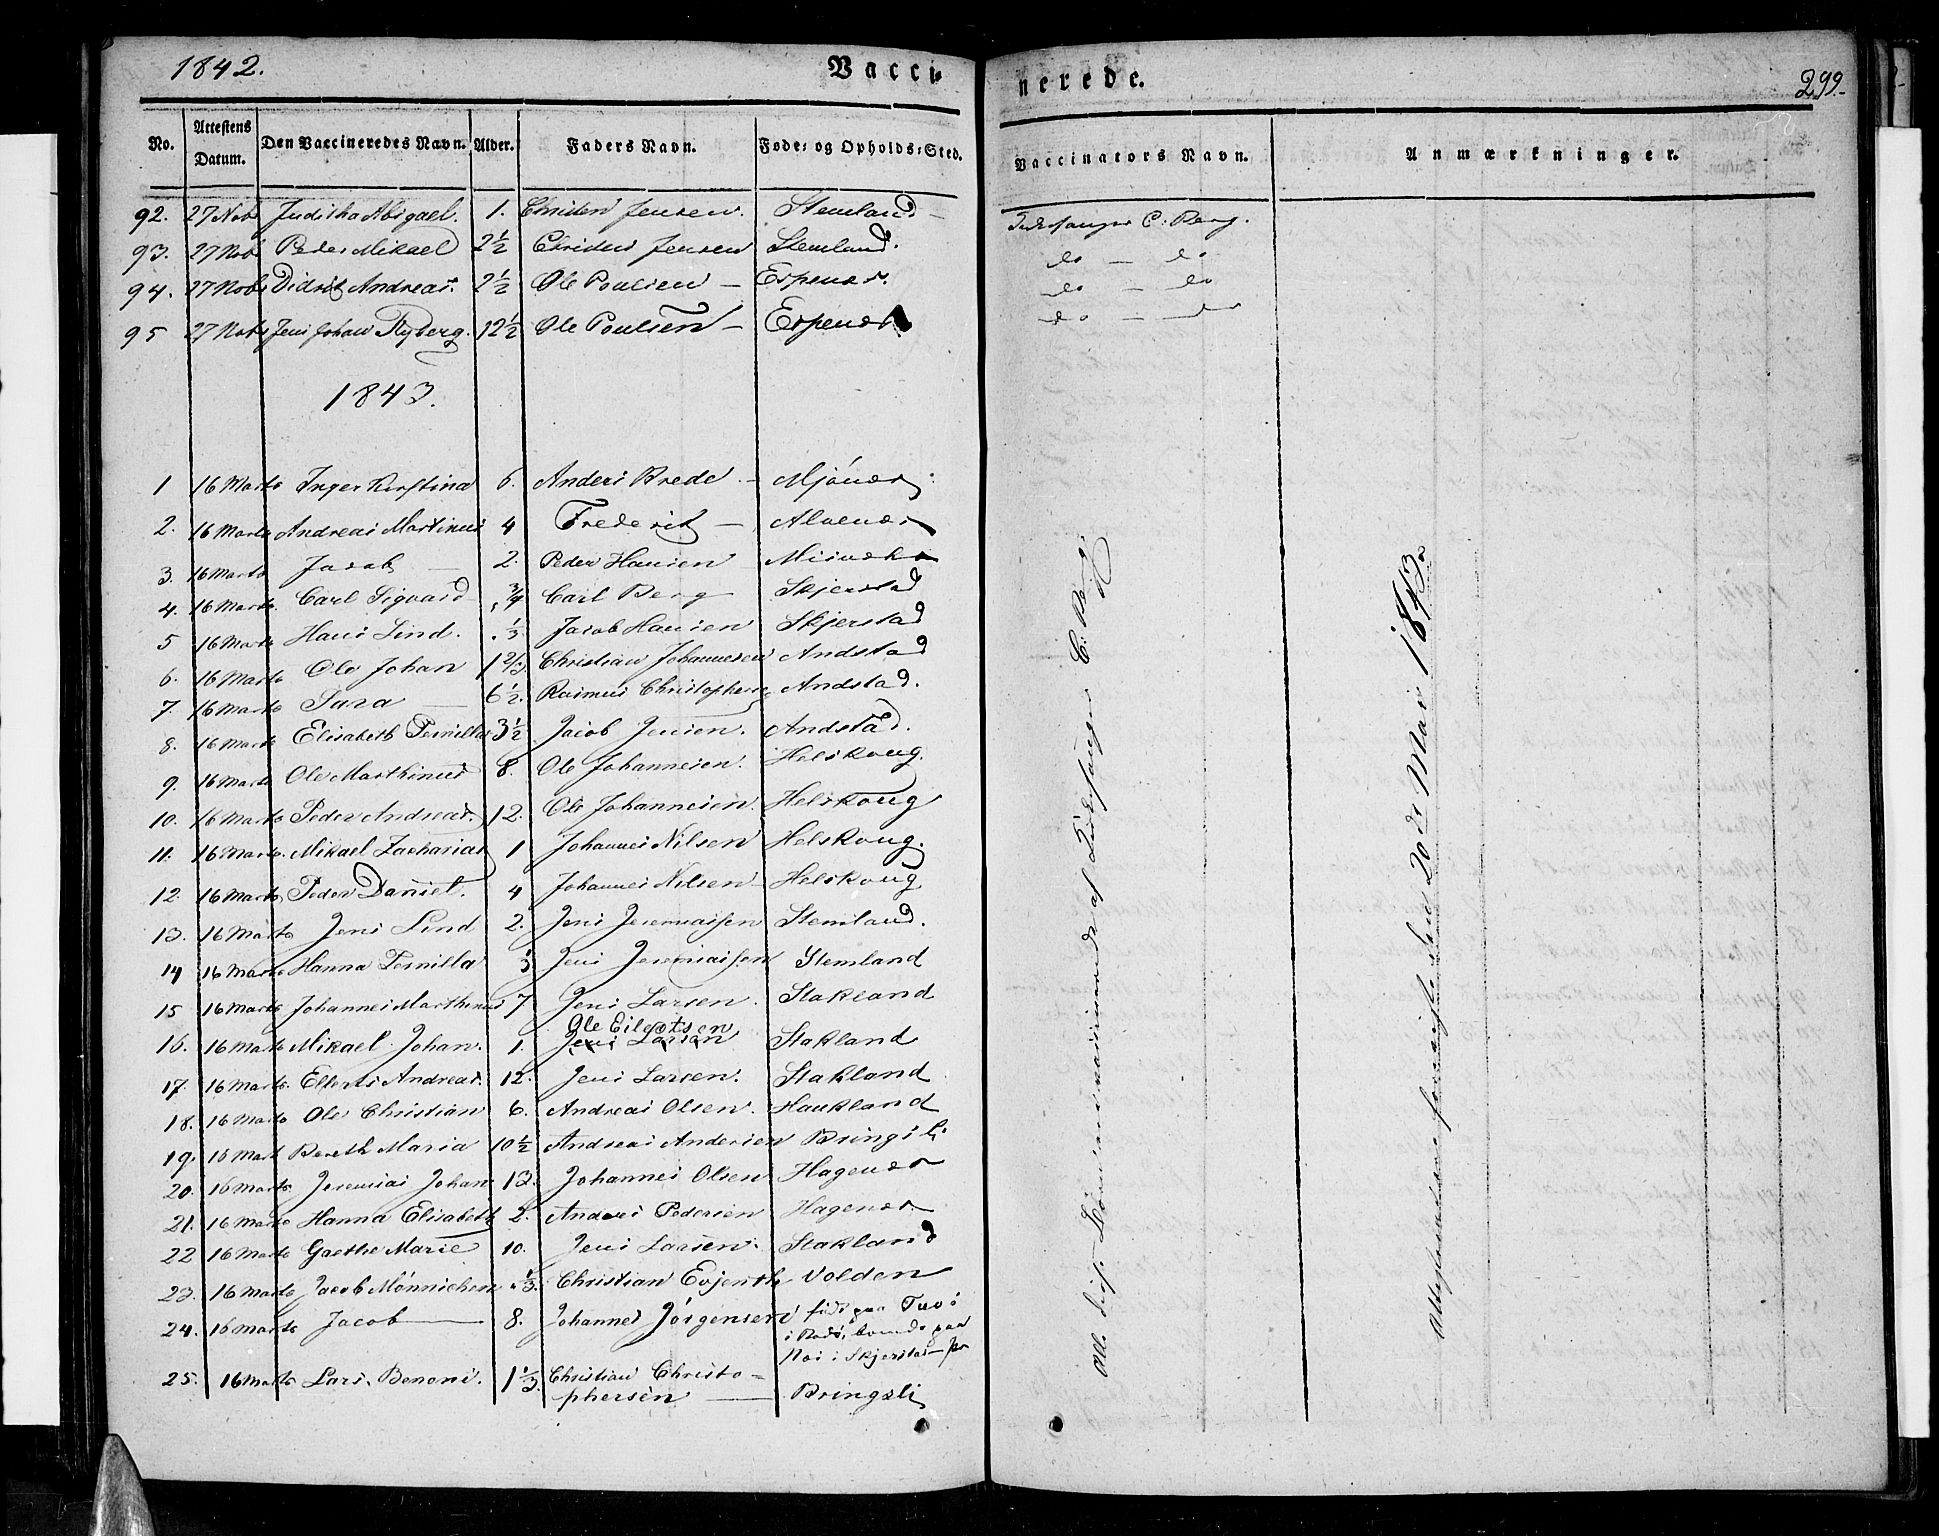 1842.
Vacci-
nerede.
299.
No.
Attestens Datum.
Den Vaccineredes Navn.
Alder.
Faders Navn.
Føde- og Opholds-Sted.
Vaccinators Navn.
Anmærkninger.
92. 27 Nobr Juditha Abigael. 1. Christen Jensen. Stemland C. Berg.
93. 27 Nobr Peder Mikael 2½ Christen Jensen Stemland. do — do
94. 27 Nobr Didrik Andreas. 2½ Ole Poulsen — Espenæs. do — do
95 27 Nobr Jens Johan Ryberg. 12½ Ole Poulsen — Espenæs do — do
1843.
1 16 Marts Inger Kirstina 6. Anders Brede — Mjónæs
2. 16 Marts Andreas Martinus 4 Frederik — Alvenæs
3. 16 Marts Jacob — 2. Peder Hansen Misvæhr
4. 16 Marts Carl Sigvard ¾ Carl Berg — Skjerstad
5 16 Marts Hans Lind. ⅓ Jacob Hansen Skjerstad
6. 16 Marts Ole Johan 1⅔ Christian Johannesen Andstad
7. 16 Marts Sara — 6½. Rasmus Christophersen Andstad.
8. 16 Marts Elisabeth Pernilla 3½ Jacob Jensen. Andstad.
9. 16 Marts Ole Marthinus 8. Ole Johannesen. Helskoug.
10. 16 Marts Peder Andreas. 12. Ole Johannesen. Helskoug
11. 16 Marts. Mikael Zacharias 1 Johannes Nilsen Helskoug.
12. 16 Marts Peder Daniel. 4 Johannes Nilsen — Helskoug
13. 16 Marts Jens Lind 2. Jens Jeremiassen Stemland.
14 16 Marts Hanna Pernilla Jens Jeremiassen Stemland
15 16 Marts Johannes Marthinus 7 Jens Larsen. Stakland
Ole Eilertsen
16. 16 Marts Mikael Johan. 1. Jens Larsen Stakland
17. 16 Marts. Ellert Andreas. 12. Jens Larsen. Stakland
18. 16 Marts Ole Christian 6. Andreas Olsen. Haukland
19. 16 Mart Bereth Maria 10½ Andreas Andersen Bringsli
20. 16 Marts Jeremias Johan 13. Johannes Olsen Hagenæs
21. 16 Marts Hanna Elisabeth 2. Anders Pedersen Hagenæs
22 16 Marts Grethe Marie 10. Jens Larsen. Stakland
23. 16 Marts Jacob Mønnichen ⅓. Christian Evjenth Volden
24. 16 Marts Jacob — 8. Johannes Jørgensen født paa Tuv i
i Bodø, boende paa
i Skjerstad
25. 16 Marts Lars Benoni. 1⅓. Christian Christo-
phersen — Bringsli
Alle disse Børn ere vaccinerede af C. Berg
Attesterne den 20de Mai 1843